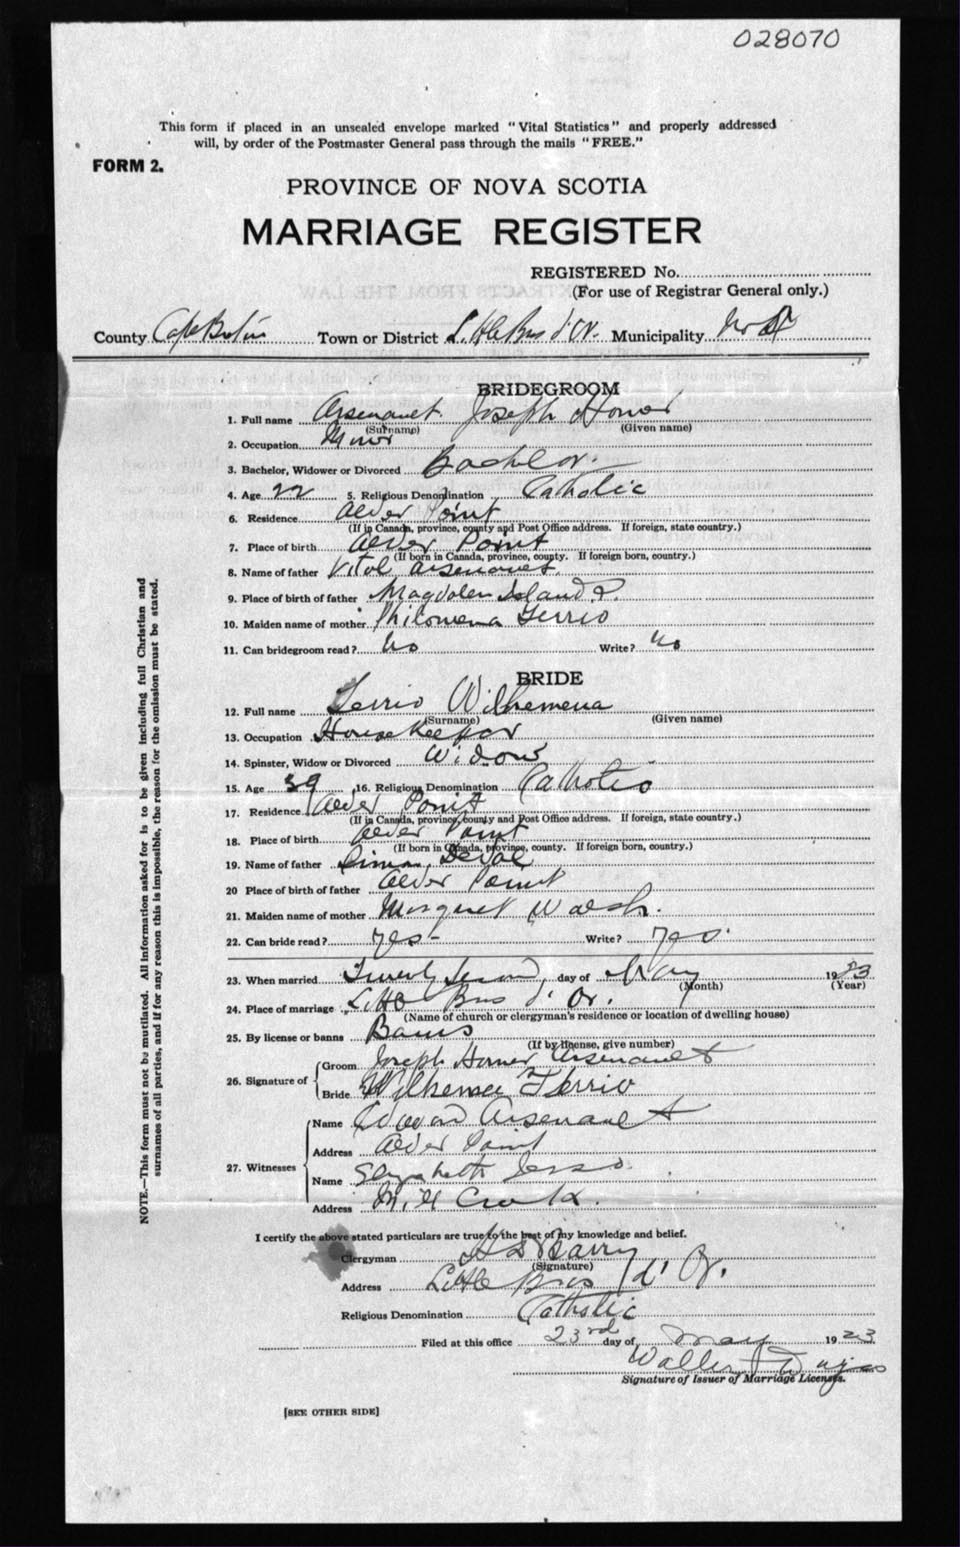 028070
This form if placed in an unsealed envelope marked "Vital Statistics" and properly addressed
will, by order of the Postmaster General pass through the mails "FREE."
FORM 2.
PROVINCE OF NOVA SCOTIA
MARRIAGE REGISTER
REGISTERED No.
(For use of Registrar General only.)
County Cape Breton Town or District Little Bras d'Or. Municipality
BRIDEGROOM
1. Full name Arsenault Joseph Homer
(Surname) (Given name)
2. Occupation Miner
3. Bachelor, Widower or Divorced Bachelor
4. Age 22 5. Religious Denomination Catholic
6. Residence Alder Point
(If in Canada, province, county and Post Office address. If foreign, state country.)
7. Place of birth Alder Point
(If born in Canada, province, county. If foreign born, country.)
8. Name of father Vital Arsenault.
9. Place of birth of father Magdalen Island
10. Maiden name of mother Philomena Terrio
11. Can bridegroom read? No Write? No
BRIDE
12. Full name Terrio Wilhemena
(Surname) (Given name)
13. Occupation House Keeper
14. Spinster, Widow or Divorced Widow
15. Age 39 16. Religious Denomination Catholic
17. Residence Alder Point
(If in Canada, province, county and Post Office address. If foreign, state country.)
18. Place of birth Alder Point
(If born in Canada, province, county. If foreign born, country.)
19. Name of father Simon
20 Place of birth of father Alder Point
21. Maiden name of mother Margaret Walsh.
22. Can bride read? Yes - Write? Yes.
23. When married Twenty Second day of May 1923
(Month) (Year)
24. Place of marriage Little Bras d'Or.
(Name of church or clergyman's residence or location of dwelling house)
25. By license or banns Banns
(If by license, give number)
26. Signature of
Groom Joseph Homer Arsenault
Bride Wilhemena Terrio
27. Witnesses
Name Edward Arsenault
Address Alder Point
Name Elizabeth Jesso.
Address Mill Creek.
I certify the above stated particulars are true to the best of my knowledge and belief.
Clergyman Barry
(Signature)
Address Little Bras d'Or.
Religious Denomination Catholic
Filed at this office 23rd day of May 1923
Walter
Signature of Issuer of Marriage Licenses.
[SEE OTHER SIDE]
NOTE.—This form must not be mutilated. All information asked for is to be given including full Christian and
surnames of all parties, and if for any reason this is impossible, the reason for the omission must be stated.